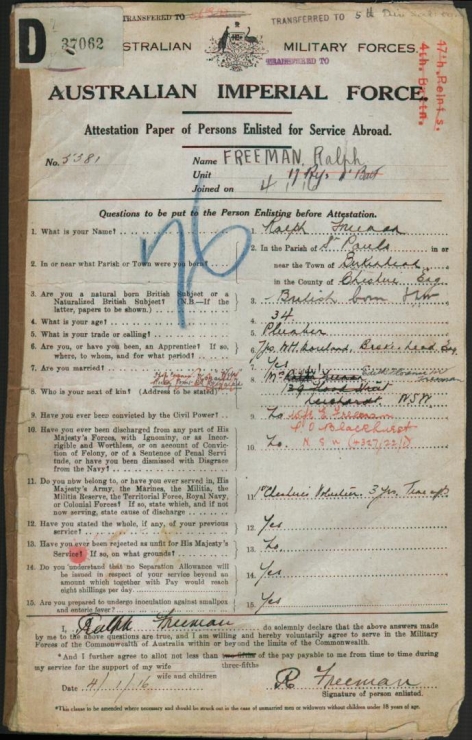 TRANSFERRED TO
TRANSFERRED TO 5th
D 37062
AUSTRALIAN MILITARY FORCES.
TRANSFERRED TO
47th Reints.
4th Battn.
AUSTRALIAN IMPERIAL FORCE.
Attestation Paper of Persons Enlisted for Service Abroad.
No. 5381
Name FREEMAN, Ralph
Unit
Joined on 4 1 16
Questions to be put to the Person Enlisting before Attestation.
1. What is your Name?
1. Ralph Freeman
2. In or near what Parish or Town were you born?
2. In the Parish of St Pauls in or
near the Town of Birkenhead
in the County of Cheshire Eng
3. Are you a natural born British Subject or a
Naturalized British Subject? (N.B.—If the
latter, papers to be shown.)
3. British born
4. What is your age?
4. 34
5. What is your trade or calling?
5. Plumber
6. Are you, or have you been, an Apprentice? If so,
where, to whom, and for what period?
6. Yes
7. Are you married?
7. Yes
8. Who is your next of kin? (Address to be stated)
8. Mrs Freeman
Leichardt N.S.W.
9. Have you ever been convicted by the Civil Power?
9. No
P.O. Blackhurst
N.S.W.
10. Have you ever been discharged from any part of
His Majesty's Forces, with Ignominy, or as Incor-
rigible and Worthless, or on account of Convic-
tion of Felony, or of a Sentence of Penal Servi-
tude, or have you been dismissed with Disgrace
from the Navy?
10. No.
11. Do you now belong to, or have you ever served in, His
Majesty's Army, the Marines, the Militia, the
Militia Reserve, the Territorial Force, Royal Navy,
or Colonial Forces? If so, state which, and if not
now serving, state cause of discharge
11. 3 yrs. Time exp.
12. Have you stated the whole, if any, of your previous
service?
12. Yes
13. Have you ever been rejected as unfit for His Majesty's
Service? If so, on what grounds?
13. No
14. Do you understand that no Separation Allowance will
be issued in respect of your service beyond an
amount which together with Pay would reach
eight shillings per day.
14. Yes
15. Are you prepared to undergo inoculation against smallpox
and enteric fever?
15. Yes
I, Ralph Freeman do solemnly declare that the above answers made
by me to the above questions are true, and I am willing and hereby voluntarily agree to serve in the Military
Forces of the Commonwealth of Australia within or beyond the limits of the Commonwealth.
*And I further agree to allot not less than two-fifths of the pay payable to me from time to time during
three-fifths
my service for the support of my wife
wife and children
Date 4/1/16
R Freeman
Signature of person enlisted.
*This clause to be amended where necessary and should be struck out in the case of unmarried men or widowers without children under 18 years of age.